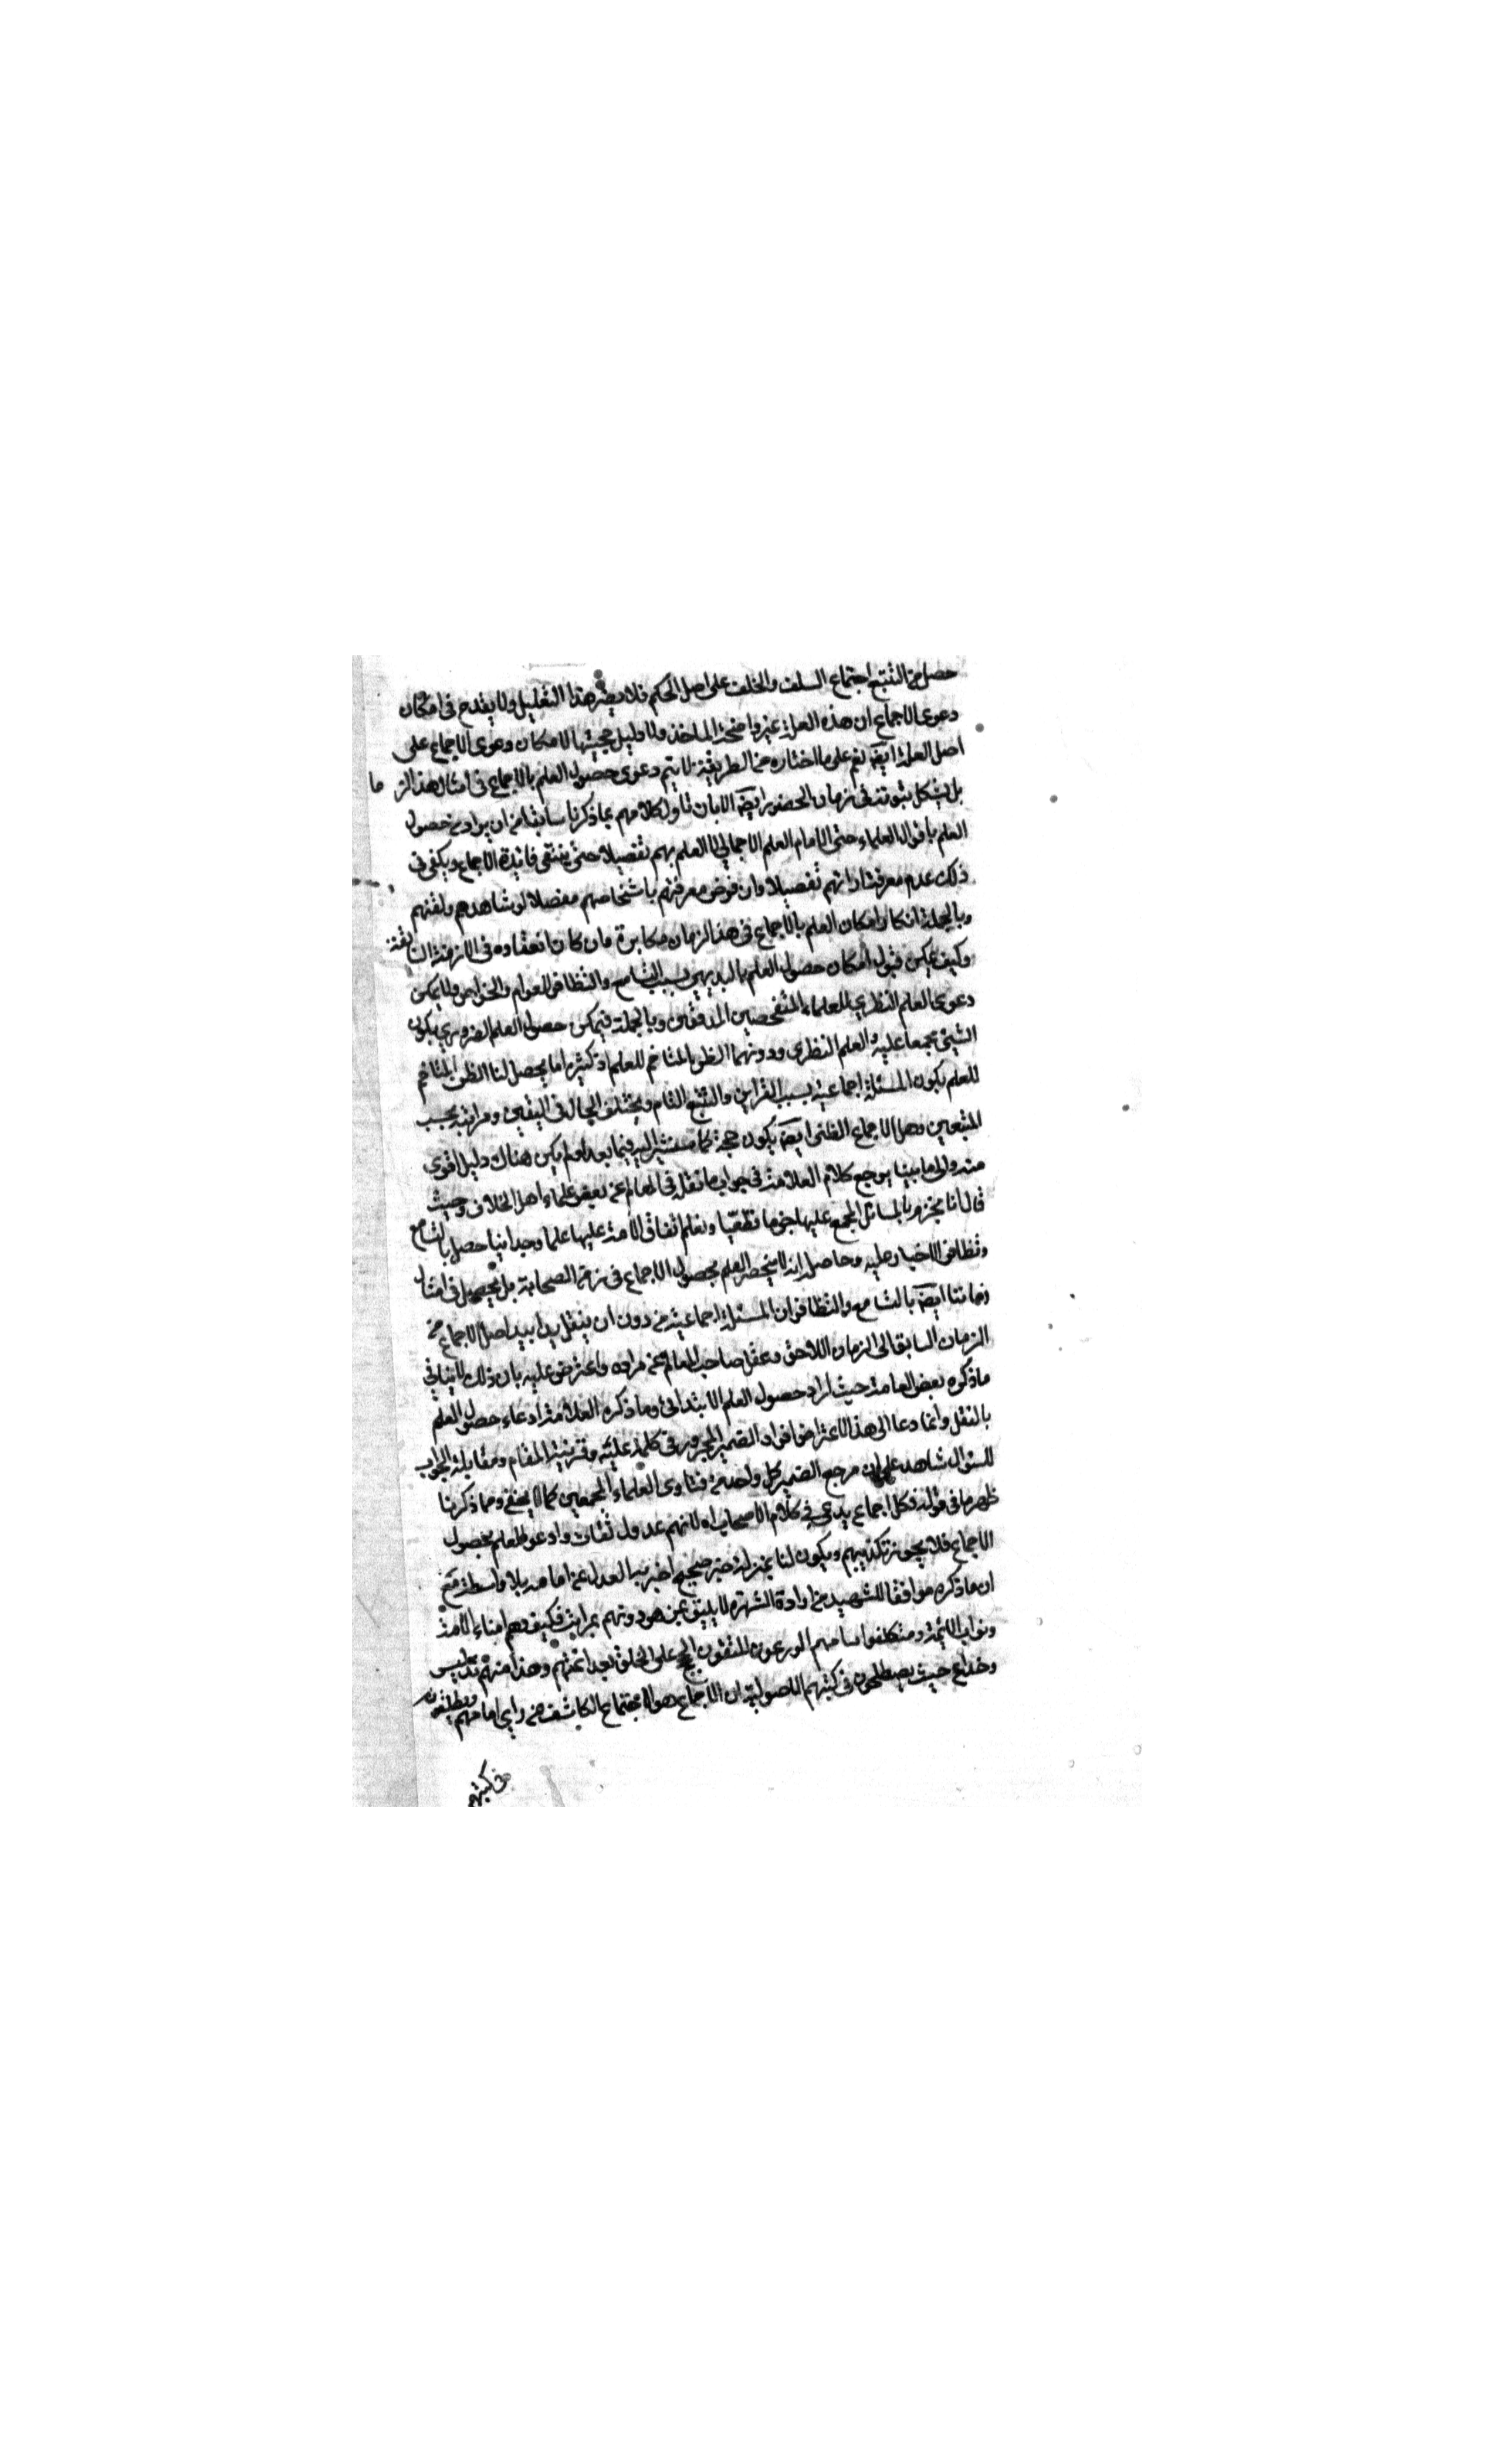 حصل من التتبع اجتماع السلف والخلف على اصل الحكم فلا يضر هذا التعليل ولا يقدح في امكان
دعوى الاجماع ان هذه العلة غير واضحة الماخذ ولا دليل حجيتها لامكان دعوى الاجماع على
اصل العلة ايضا نعم على ما اختاره من الطريقة لا يتم دعوى حصول العلم بالاجماع في امثال هذا الز ما
بل يشكل ثبوته في زمان الحضور ايضا الا بان تاول كلامهم بما ذكرنا سابقا من ان يراد حصول
العلم باقوال العلماء حتى الامام العلم الاجمالي لا العلم بهم تفصيلا حتى ينتفي فائدة الاجماع ويكفي في
ذلك عدم معرفة ذاتهم تفصيلا وان فرض معرفتهم باشخاصهم مفصلا لو شاهدهم ولقيهم
وبالجملة انكار امكان العلم بالاجماع في هذا الزمان مكابرة وان كان انعقاده في الازمنة السابقة
وكيف يمكن قبول امكان حصول العلم بالبديهي بسبب التسامع والتظافر للعوام والخواص ولا يمكن
دعوى العلم النظري للعلماء المتفحصين المدققين وبالجملة فيمكن حصول العلم الضروري بكون
الشيئ مجمعا عليه والعلم النظري ودونهما الظن المتاخم للعلم اذ كثيرا ما يحصل لنا الظن المتاخم
للعلم بكون المسئلة اجماعية بسبب القراين والتتبع التام ويختلف الحال في اليقين ومراتبه بحسب
المتتبعين وهل الاجماع الظني ايضا يكون حجة كما سنشير اليه فيما بعد لو لم يكن هناك دليل اقوى
منه والى ما بينا يرجع كلام العلامة في جواب ما نقله في المعالم عن بعض علماء اهل الخلاف وحيث
قال انا نجزم بالمسائل المجمع عليها جزما قطعيا ونعلم اتفاق الامة عليها علما وجدانيا حصل بالتسامع
وتظافر الاخبار عليه وحاصله انه لا ينحصر العلم بحصول الاجماع في زمن الصحابة بل يحصل في امثال
زماننا ايضا بالتسامع والتظافر ان المسئلة اجماعية من دون ان ينقل يدا بيد اصل الاجماع من
الزمان السابق الى الزمان اللاحق وغفل صاحب المعالم عن مراده واعترض عليه بان ذلك لا ينافي
ما ذكره بعض العامة حيث اراد حصول العلم الابتدائي وما ذكره العلامة ادعاء حصول العلم
بالنقل وانما دعا الى هذا الاعتراض افراد الضمير المجرور في كلمة عليه وقرينة المقام ومقابلة الجواب
للسئوال شاهد على ان مرجع الضمير كل واحد من فتاوى العلماء المجمعين كما لا يخفى ومما ذكرنا
ظهر ما في قوله فكل اجماع يدعى في كلام الاصحاب اه لانهم عدول ثقات وادعوا العلم بحصول
الاجماع فلا يجوز تكذيبهم ويكون لنا بمنزلة خبر صحيح اخبر به العدل عن امامه بلا واسطة مع
ان ما ذكره موافقا للشهيد من ارادة الشهرة لا يليق بمن هو دونهم بمراتب فكيف وهم امناء الامة
ونواب الائمة ومتكلفوا اسامهم الورعون المتقون الحجج على الخلق بعد ائمتهم وهذا منهم تدليس
وخداع حيث يصطلحون في كتبهم الاصولية ان الاجماع هو الاجتماع الكاشف عن راي امامهم ويطلقونه
في كتبهم